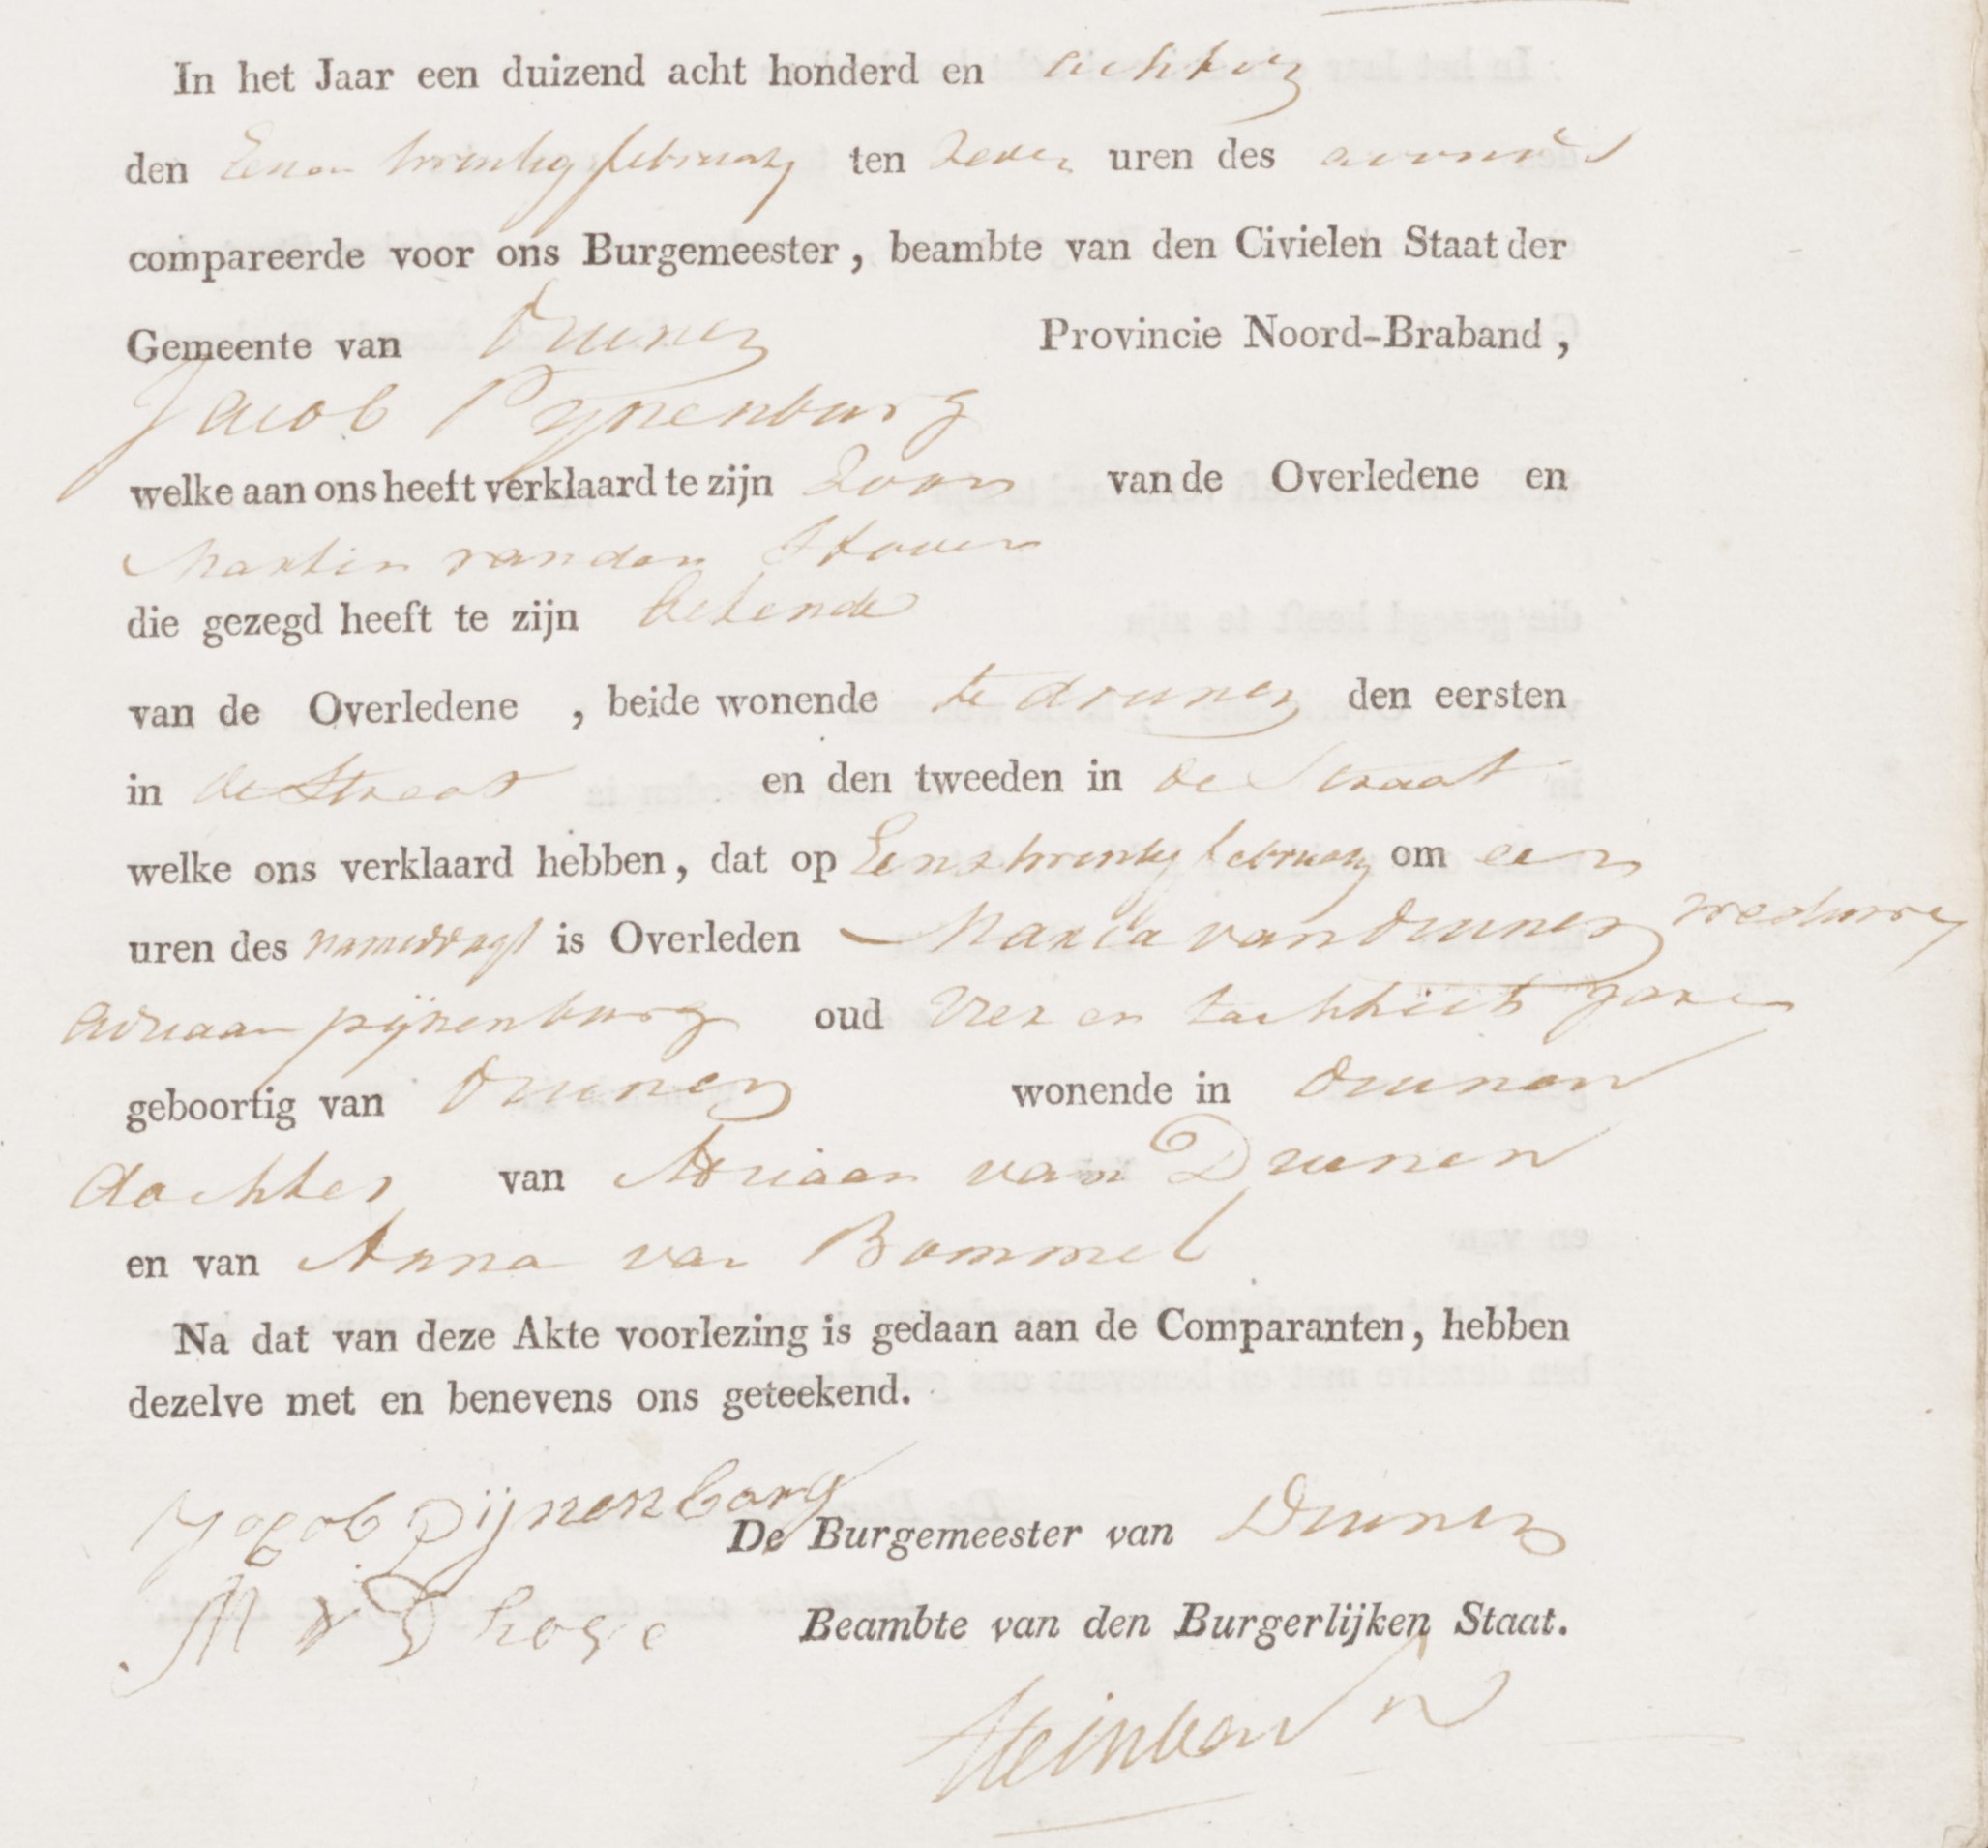 In het Jaar een duizend acht honderd en achtien
den Eenen twintig february ten zeven uren des avonds
compareerde voor ons Burgemeester, beambte van den Civielen Staat der
Gemeente van Drunen Provincie Noord-Braband,
Jacob Pijnenburg
welke aan ons heeft verklaard te zijn Zoon van de Overledene en
Martin van den Hoven
die gezegd heeft te zijn bekende
van de Overledene , beide wonende te drunen den eersten
in de Straat en den tweeden in de Straat
welke ons verklaard hebben, dat op Eenentwintig february om een
uren des namiddags is Overleden Maria van Drunen weduwe
Adriaan pijnenburg oud vier en tachtich jaren
geboortig van Drunen wonende in Drunen
dochter van Adriaan van Drunen
en van Anna van Bommel
Na dat van deze Akte voorlezing is gedaan aan de Comparanten, hebben
dezelve met en benevens ons geteekend.
Jacob Pijnenborg
De Burgemeester van Drunen
M v D hove
Beambte van den Burgerlijken Staat.